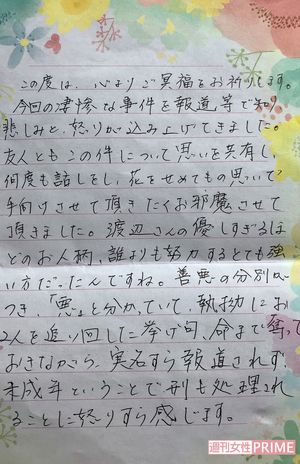 この度は、心よりご冥福をお祈りします。
今回の凄惨な事件を報道等で知り
悲しみと、怒りが込み上げてきました。
友人ともこの件について思いを共有し、
何度も話しをし、花をせめてもの思いで
手向けさせて頂きたくお邪魔させて
頂きました。渡辺さんの優しすぎるほ
どのお人柄、誰よりも努力するとても強
い方だったんですね。善悪の分別が
つき、「悪」と分かっていて、執拗にお
2人を追い回した挙げ句、命まで奪って
おきながら、実名すら報道されず、
未成年ということで刑も処理され
ることに怒りすら感じます。
週刊女性PRIME